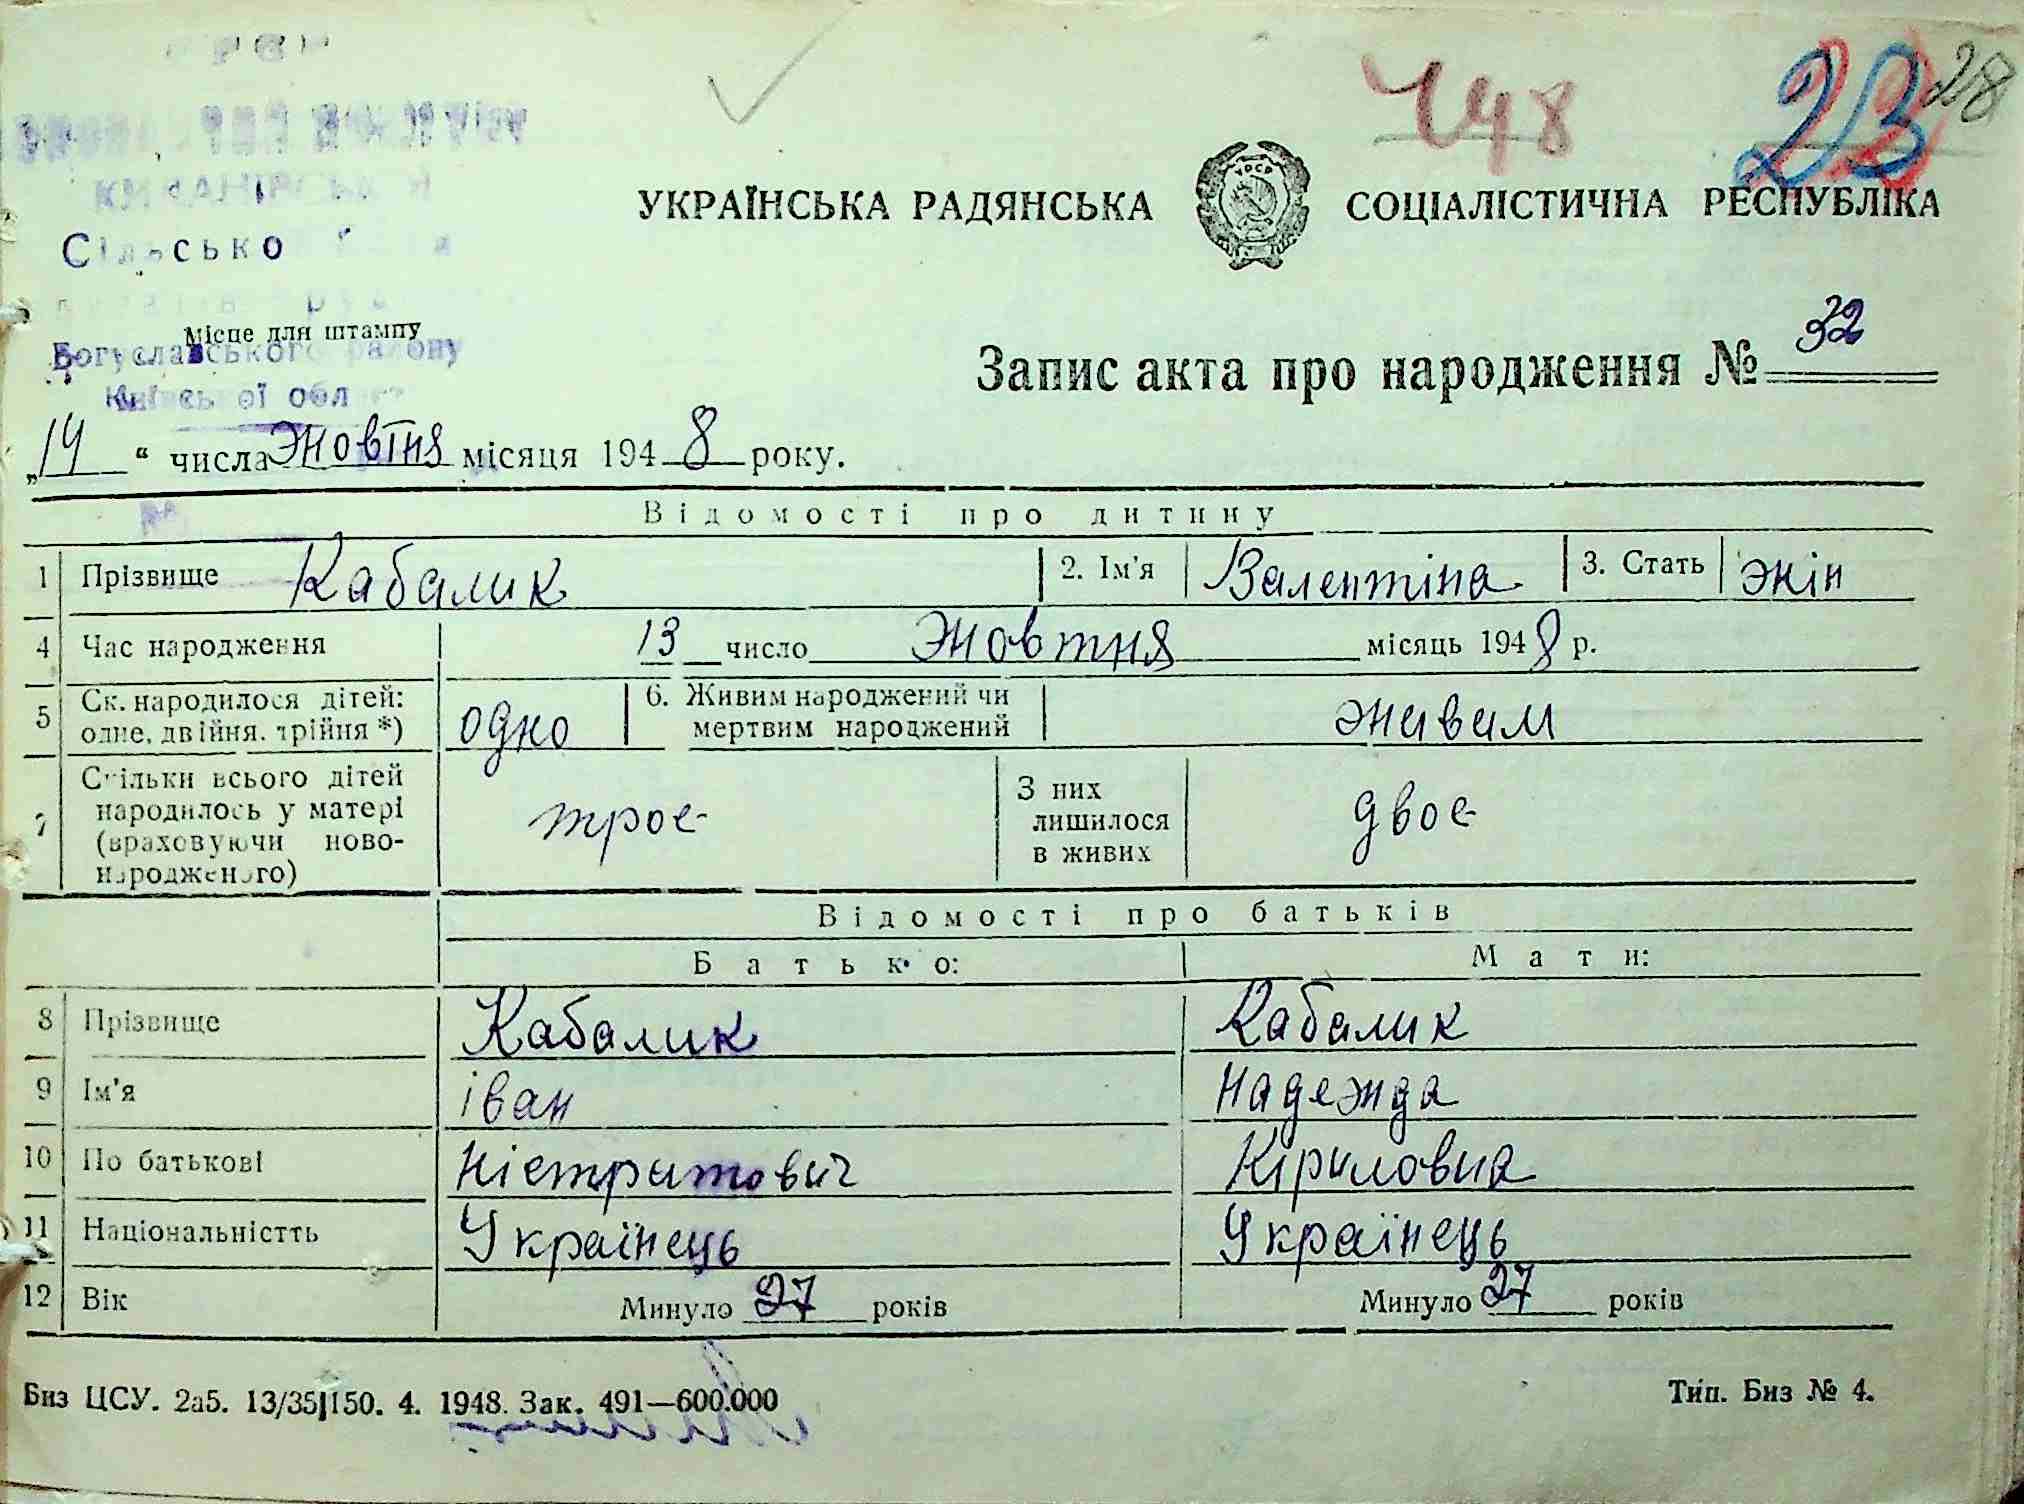 448 23 28
УКРАЇНСЬКА РАДЯНСЬКА УРСР СОЦІАЛІСТИЧНА РЕСПУБЛІКА
Сільсько
Місце для штампу
Богуславського району
Київської обл
Запис акта про народження № 32
„14“ числа жовтня місяця 1948 року.
Відомості про дитину
1 Прізвище Кабалик 2. Ім'я Валентіна 3. Стать жін
4 Час народження 13 число жовтня місяць 1948 р.
5 Ск. народилося дітей: одне, двійня, трійня *) одно 6. Живим народжений чи мертвим народжений живим
7 Скільки всього дітей народилось у матері (враховуючи ново-народженого) троє З них лишилося в живих двоє
Відомості про батьків
Батько: Мати:
8 Прізвище Кабалик Кабалик
9 Ім'я іван Надежда
10 По батькові Ністратович Кіриловна
11 Національністть Українець Українець
12 Вік Минуло 27 років Минуло 27 років
Биз ЦСУ. 2а5. 13/35|150. 4. 1948. Зак. 491—600.000 Тип. Биз № 4.